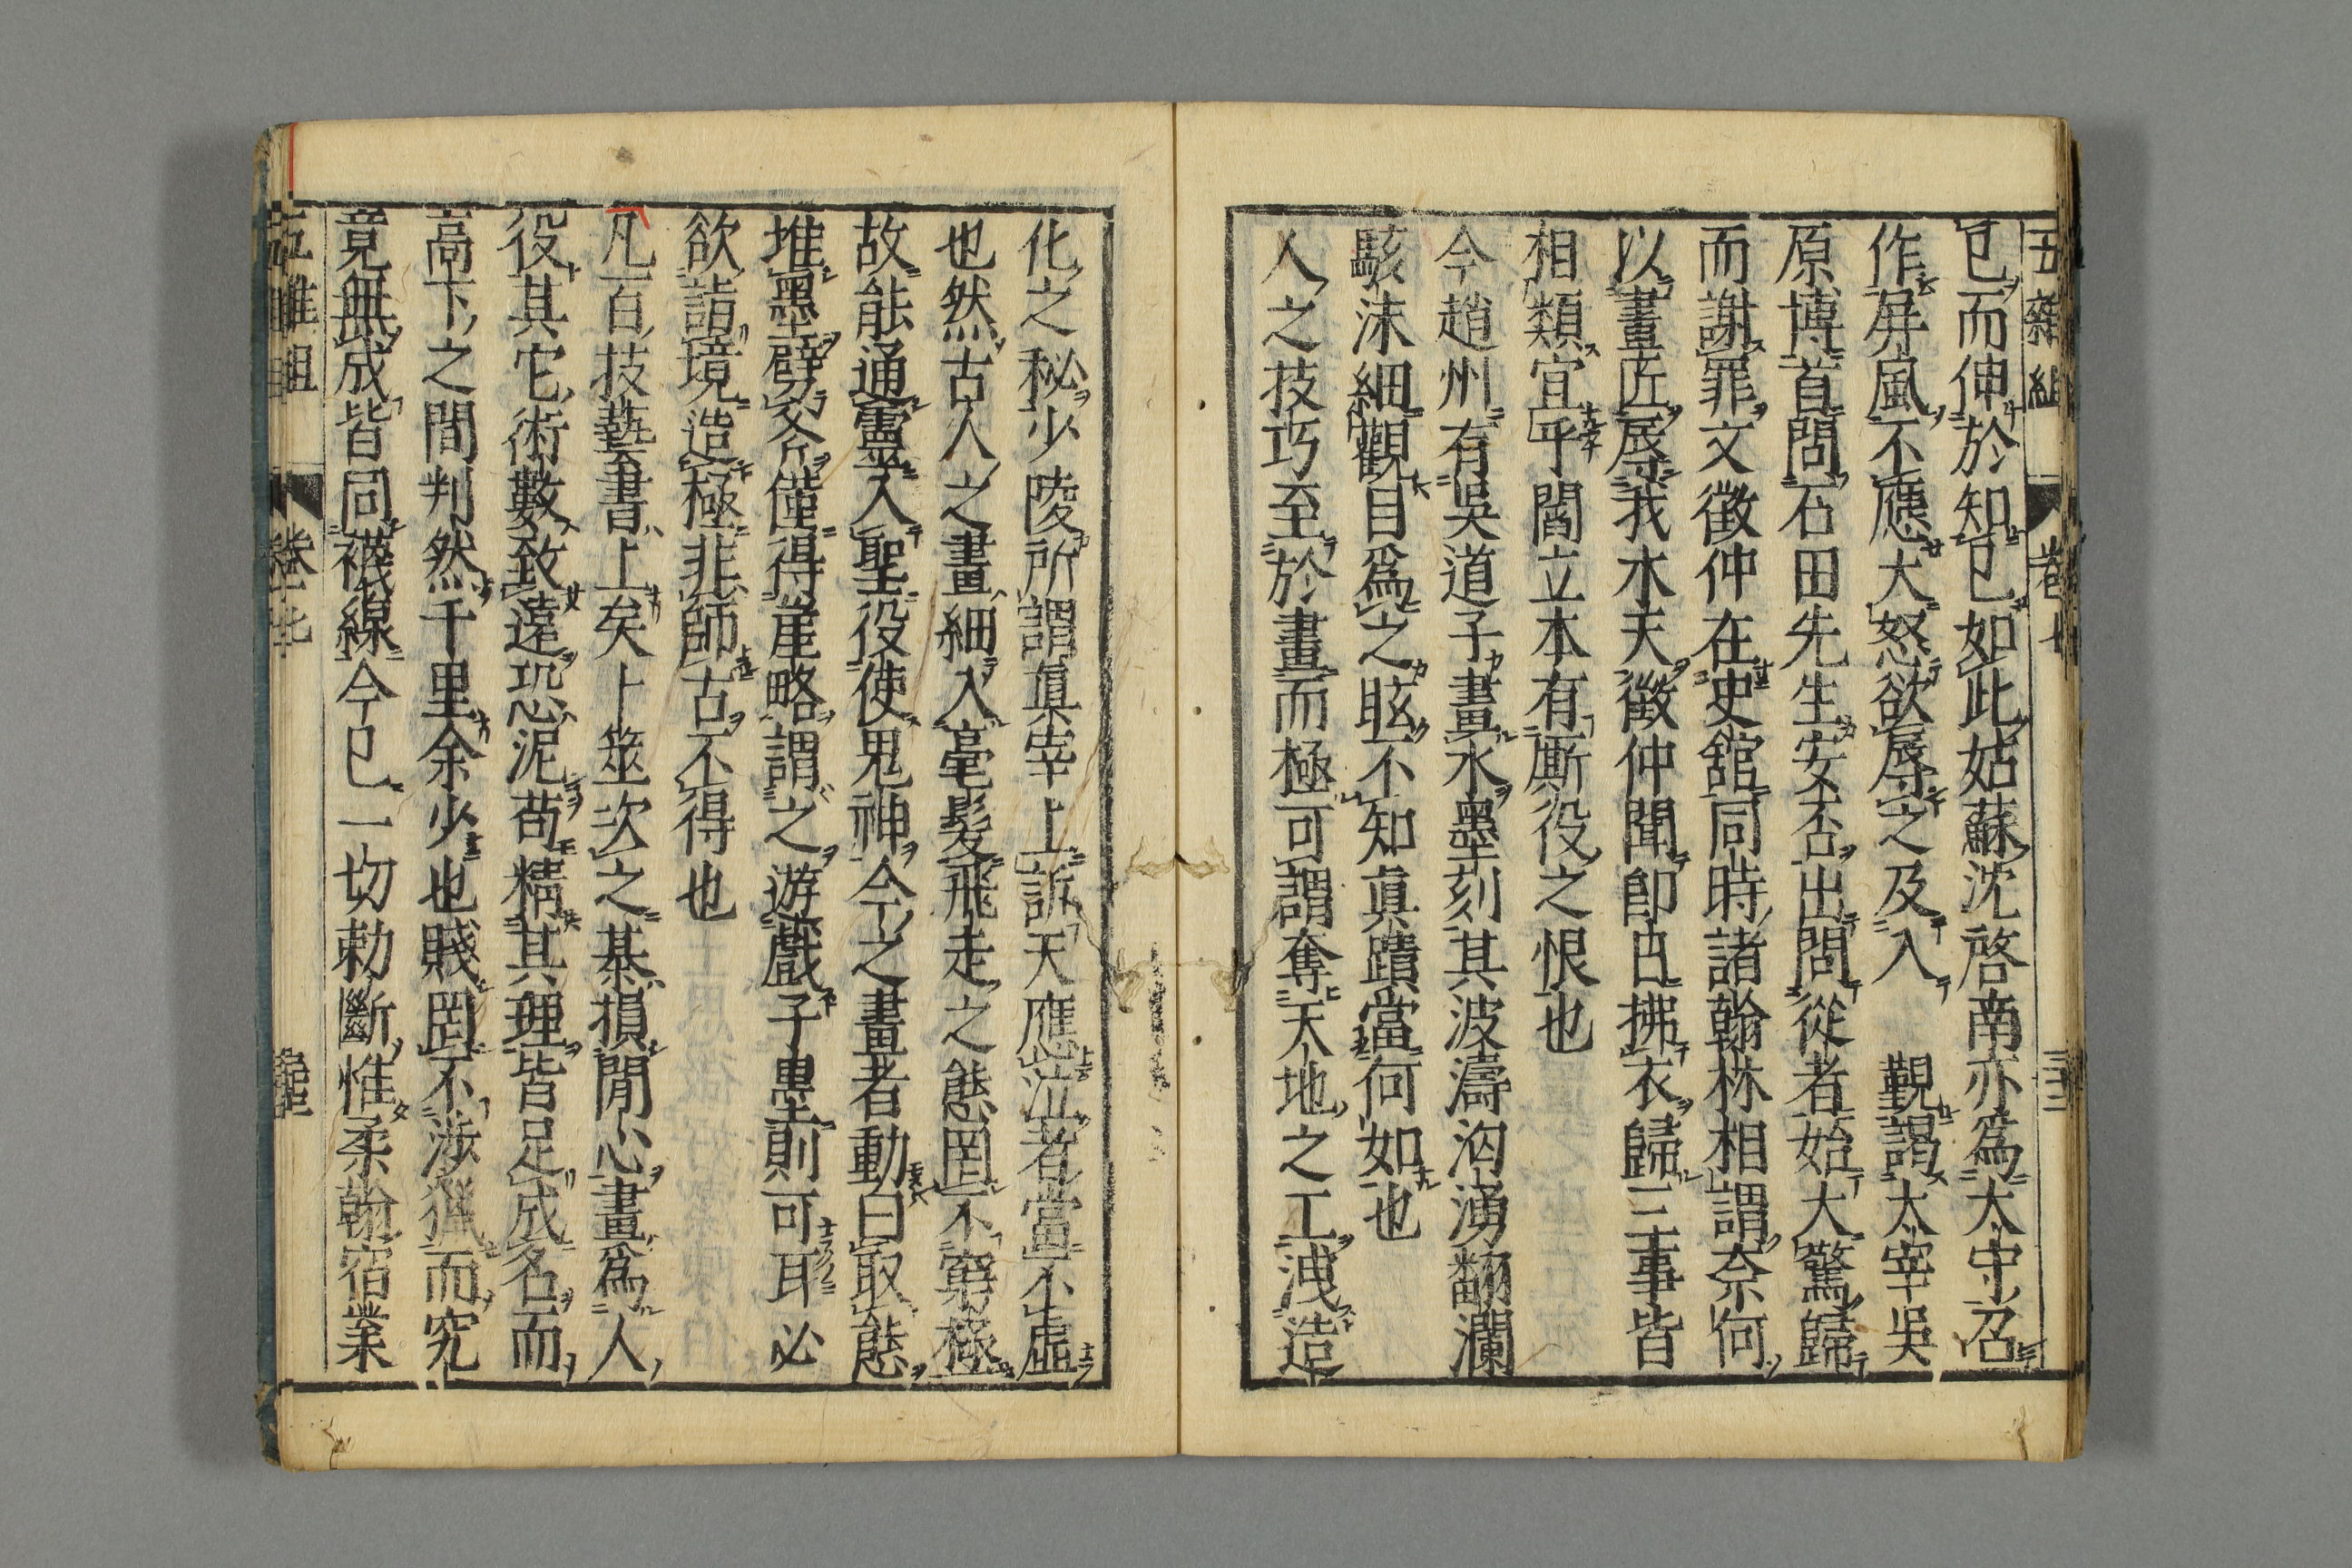 五雜組 卷七 三十三
已而伸於知已如此姑蘇沈啓南亦爲太守召
作屏風不應大怒欲辱之及入 覲謁太宰吳
原博首問石田先生安否出問從者始大驚歸
而謝罪文徵仲在史舘同時諸翰林相謂奈何
以畫匠辱我木天徵仲聞即日拂衣歸三事皆
相類宜乎閻立本有厮役之恨也
今趙州有吳道子畫水墨刻其波濤洶湧翻瀾
駭沫細觀目爲之眩不知眞蹟當何如也
人之技巧至於畫而極可謂奪天地之工洩造
化之秘少陵所謂眞宰上訴天應泣者當不虛
也然古人之畫細入毫髮飛走之態罔不窮極
故能通靈入聖役使鬼神今之畫者動曰取態
堆墨劈斧僅得崖略謂之遊戲子墨則可耳必
欲詣境造極非師古不得也
凡百技藝書上矣卜筮次之棊損閒心畫爲人
役其它術數致遠恐泥苟精其理皆足成名而
高下之間判然千里余少也賤罔不涉獵而究
竟無成皆同襪線今已一切勅斷惟柔翰宿業
五雜組 卷七